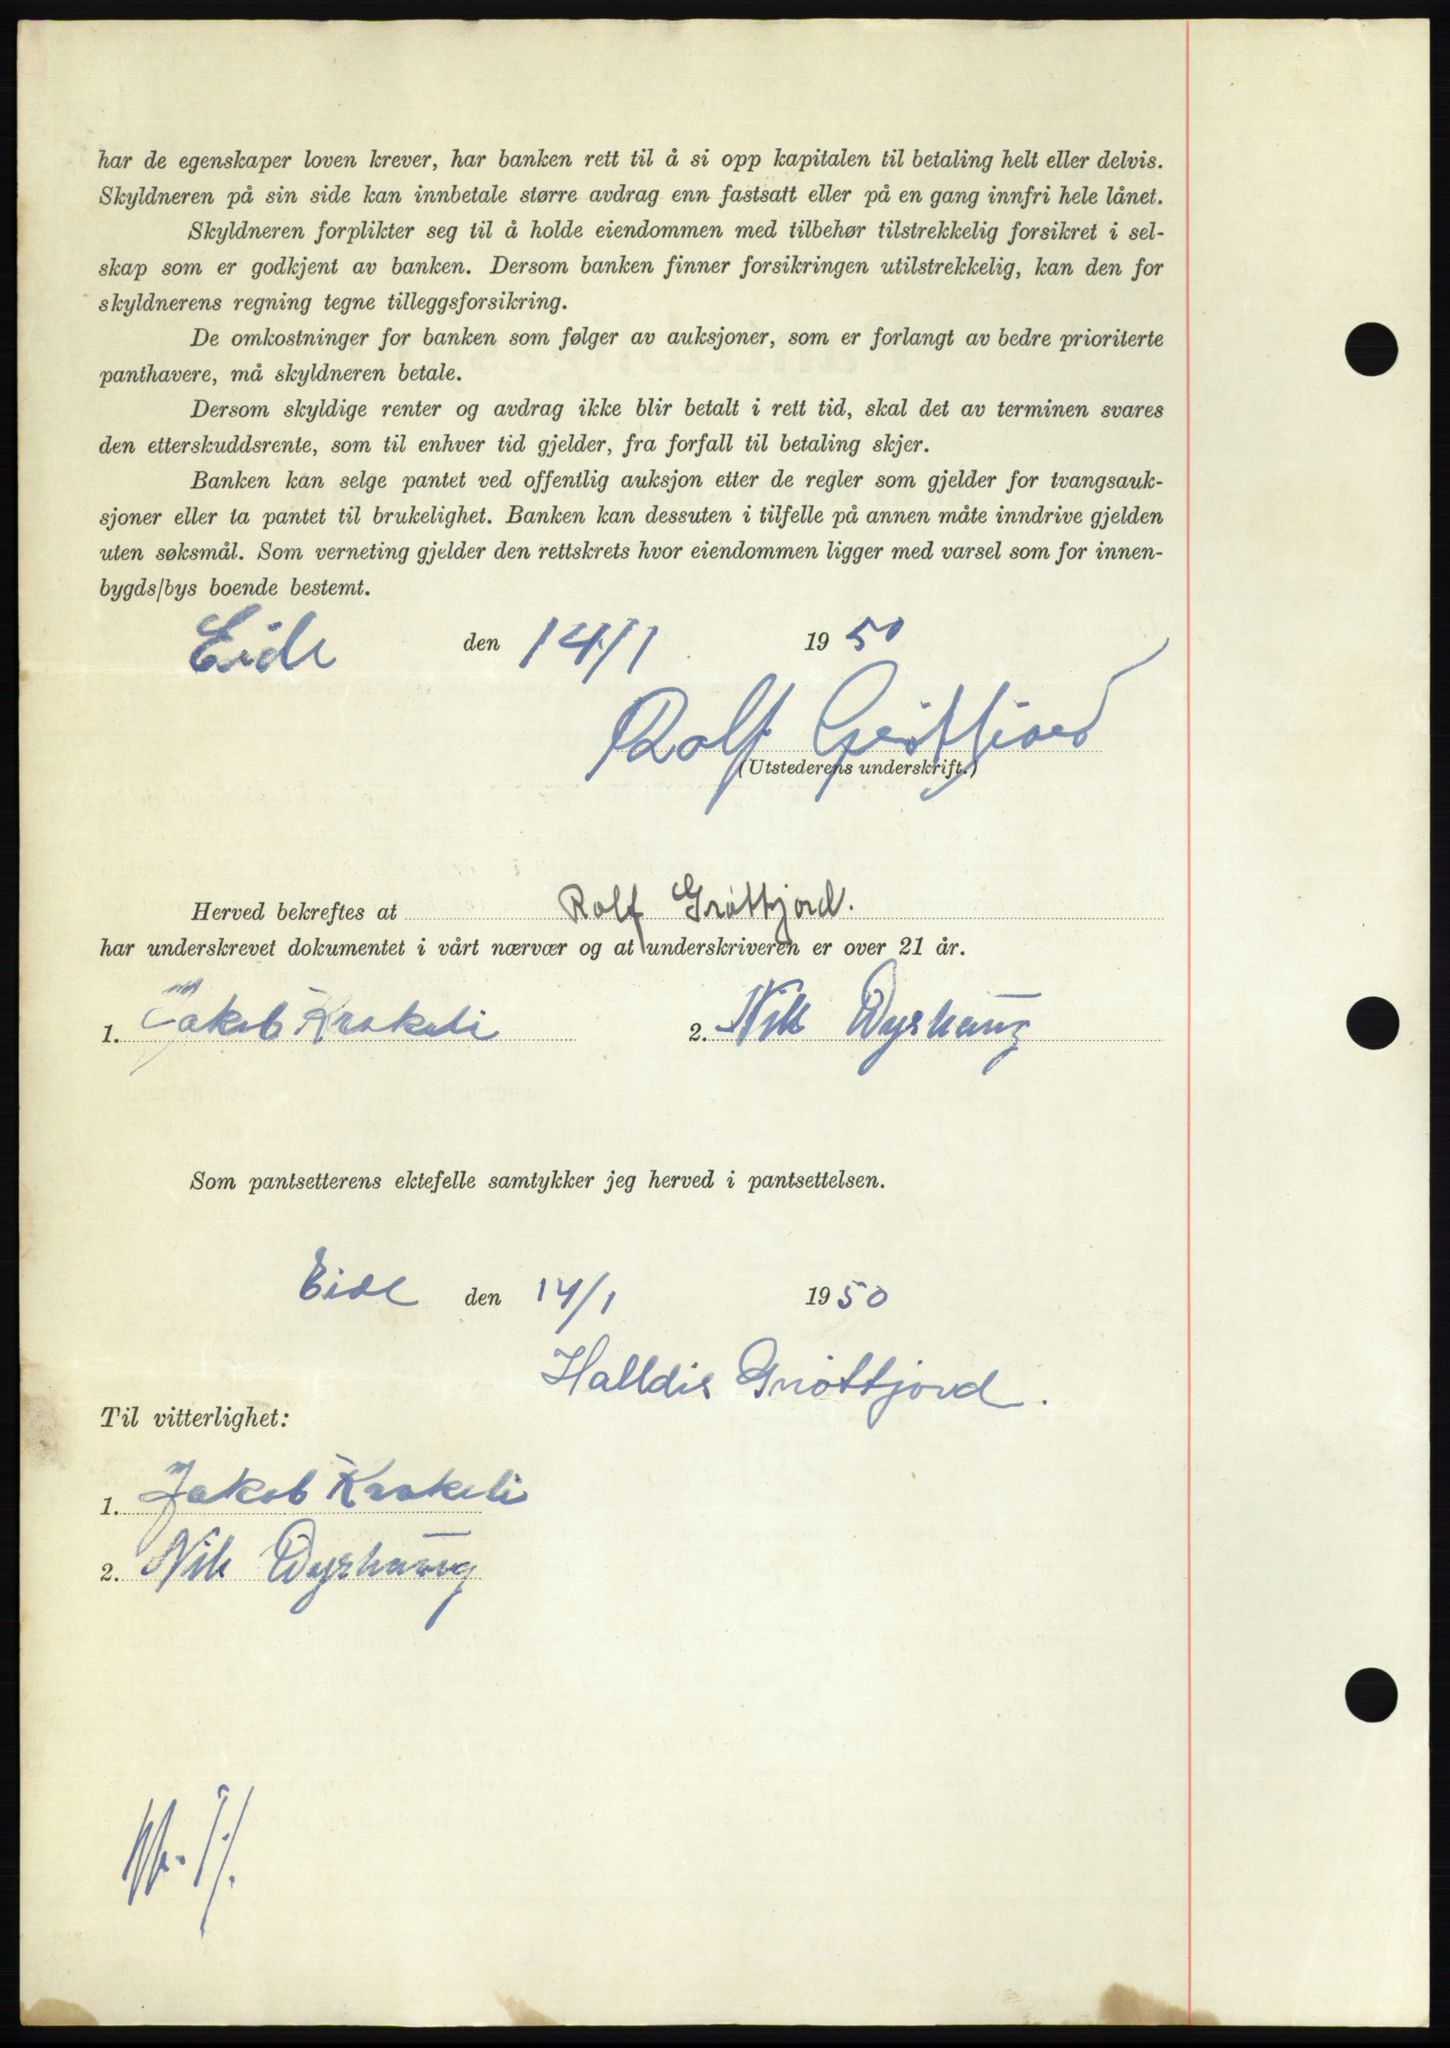 har de egenskaper loven krever, har banken rett til å si opp kapitalen til betaling helt eller delvis.
Skyldneren på sin side kan innbetale større avdrag enn fastsatt eller på en gang innfri hele lånet.
Skyldneren forplikter seg til å holde eiendommen med tilbehør tilstrekkelig forsikret i sel-
skap som er godkjent av banken. Dersom banken finner forsikringen utilstrekkelig, kan den for
skyldnerens regning tegne tilleggsforsikring.
De omkostninger for banken som følger av auksjoner, som er forlangt av bedre prioriterte
panthavere, må skyldneren betale.
Dersom skyldige renter og avdrag ikke blir betalt i rett tid, skal det av terminen svares
den etterskuddsrente, som til enhver tid gjelder, fra forfall til betaling skjer.
Banken kan selge pantet ved offentlig auksjon etter de regler som gjelder for tvangsauk-
sjoner eller ta pantet til brukelighet. Banken kan dessuten i tilfelle på annen måte inndrive gjelden
uten søksmål. Som verneting gjelder den rettskrets hvor eiendommen ligger med varsel som for innen-
bygds/bys boende bestemt.
Eide den 14/1 1950
Rolf Grøttjord
(Utstederens underskrift.)
Herved bekreftes at Rolf Grøttjord.
har underskrevet dokumentet i vårt nærvær og at underskriveren er over 21 år.
1. Jakob Krakeli 2. Nils Dyrhaug
Som pantsetterens ektefelle samtykker jeg herved i pantsettelsen.
Eide den 14/1 1950
Halldis Grøttjord.
Til vitterlighet:
1. Jakob Krakeli
2. Nils Dyrhaug